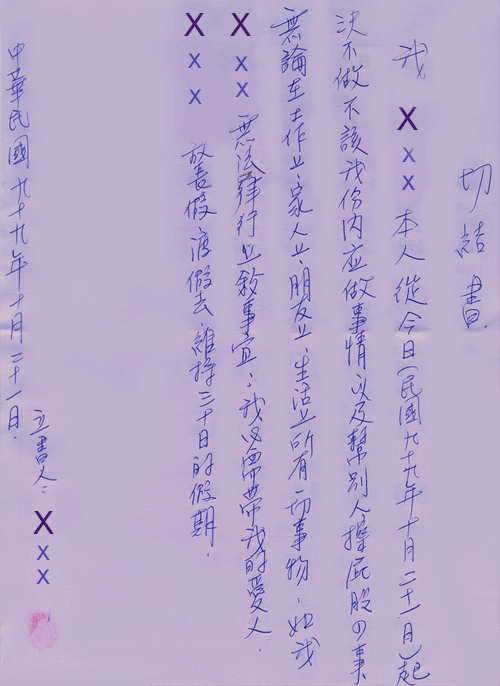 切結書.
我 XXX 本人從今日(民國九十九年十月二十一日)起
決不做不該我份內应做事情以及幫別人擦屁股の事
無論在工作上、家人上、朋友上、生活上所有一切事物，如我
XXX 無法律行上敘事宜，我必需帶我的愛人.
XXX 放長假 渡假去，維持三十日的假期.
立書人： XXX
中華民國九十九年十月二十一日.